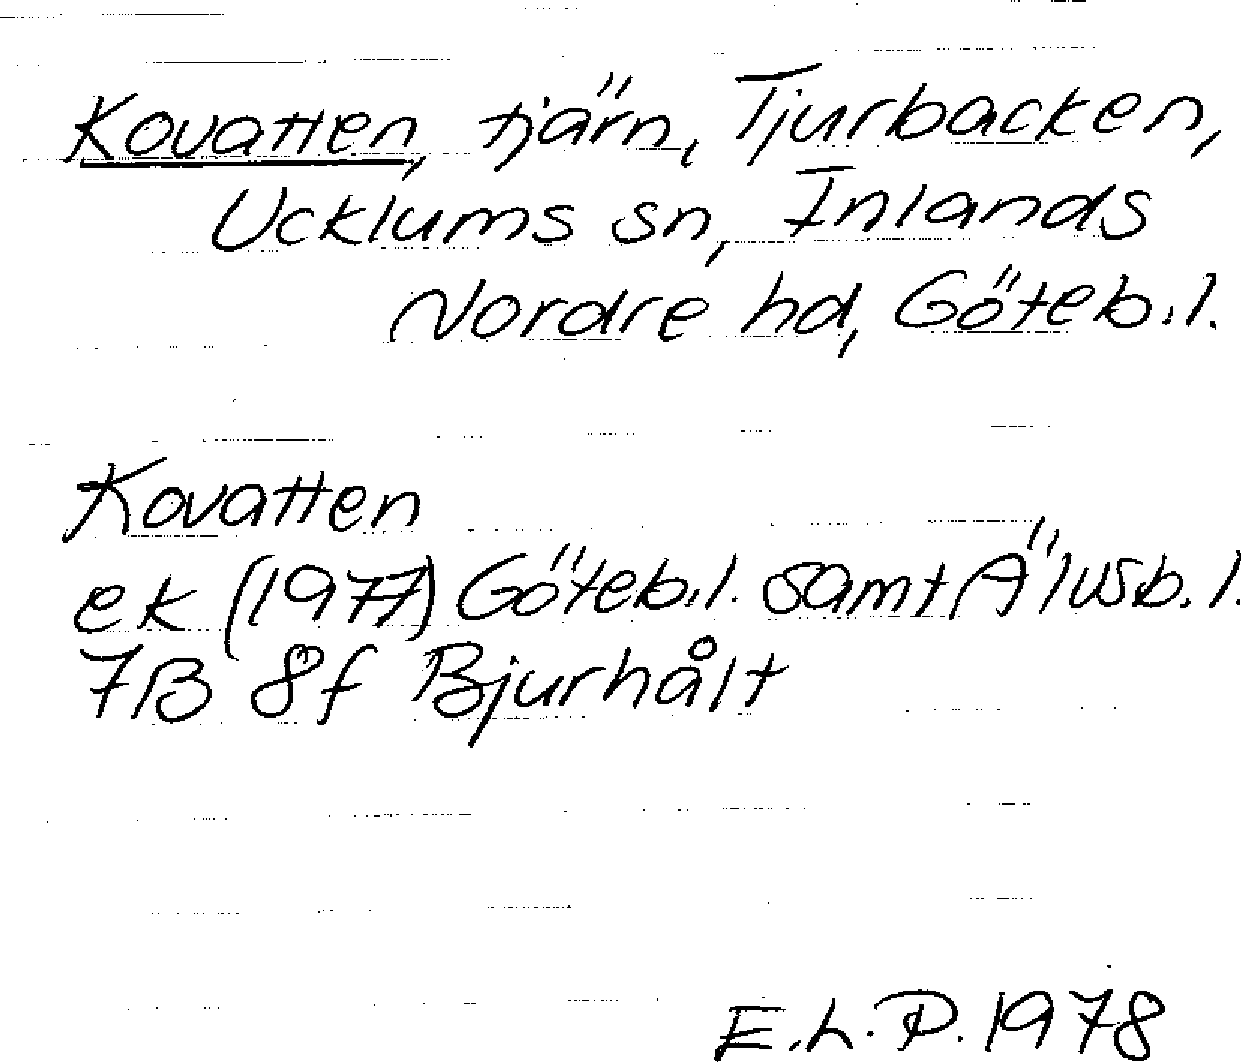 Kovatten, tjärn, Tjurbacken,
Ucklums sn, Inlands
Nordre hd, Göteb.l.
Kovatten
ek (1977) Göteb.l. samt Älvsb.l.
7B 8f Bjurhålt
E.L.P. 1978